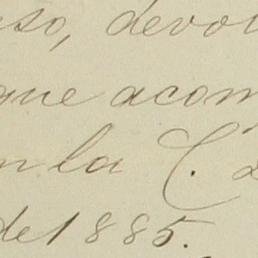 so, devol
que acom
n la C. d
de 1885.